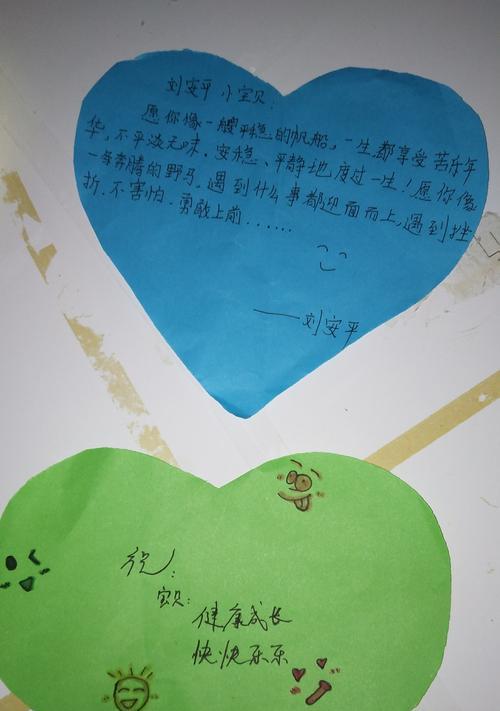 刘安平小宝贝:
愿你像一艘平稳的帆船,一生都享受苦乐年
华,不平淡无味.安稳、平静地度过一生!愿你像
一匹奔腾的野马.遇到什么事都迎面而上,遇到挫
折.不害怕.勇敢上前......
——刘安平
祝:
宝贝:
健康成长
快快乐乐